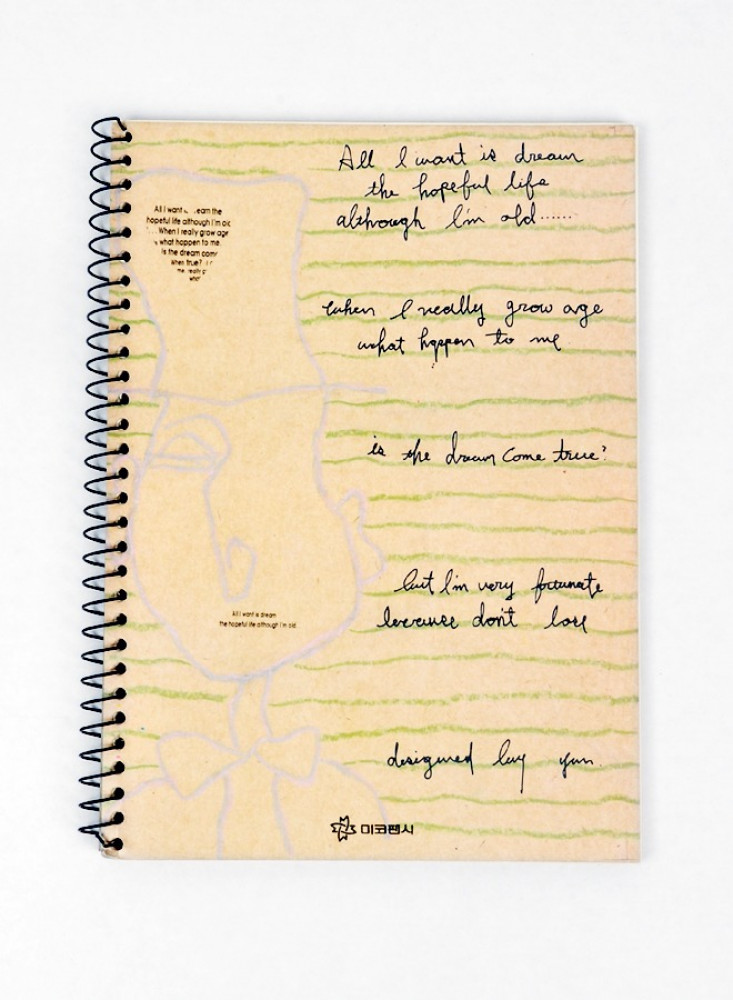 All I want is dream
the hopeful life
although I'm old......
when I really grow age
what happen to me
is the dream come true?
but I'm very fortunate
because don't lose
designed by yun.
All I want eam the
hopeful life although I'm old
When I really grow age
what happen to me.
Is the dream come
when true?
me. really g
what
All I want is dream
the hopeful life although I'm old.
미코팬시